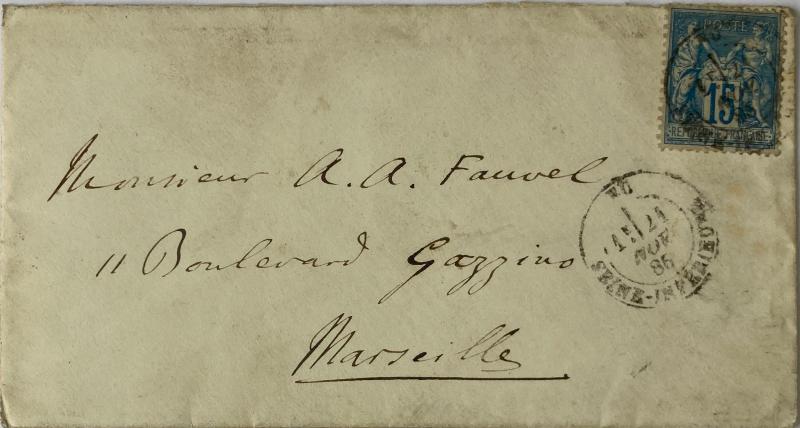 POSTE
15
REPUBLIQUE FRANCAISE
Monsieur A. A. Fauvel
11 Boulevard Gazzino
Marseille
EU
24
NOV
85
SEINE-INFERIEURE